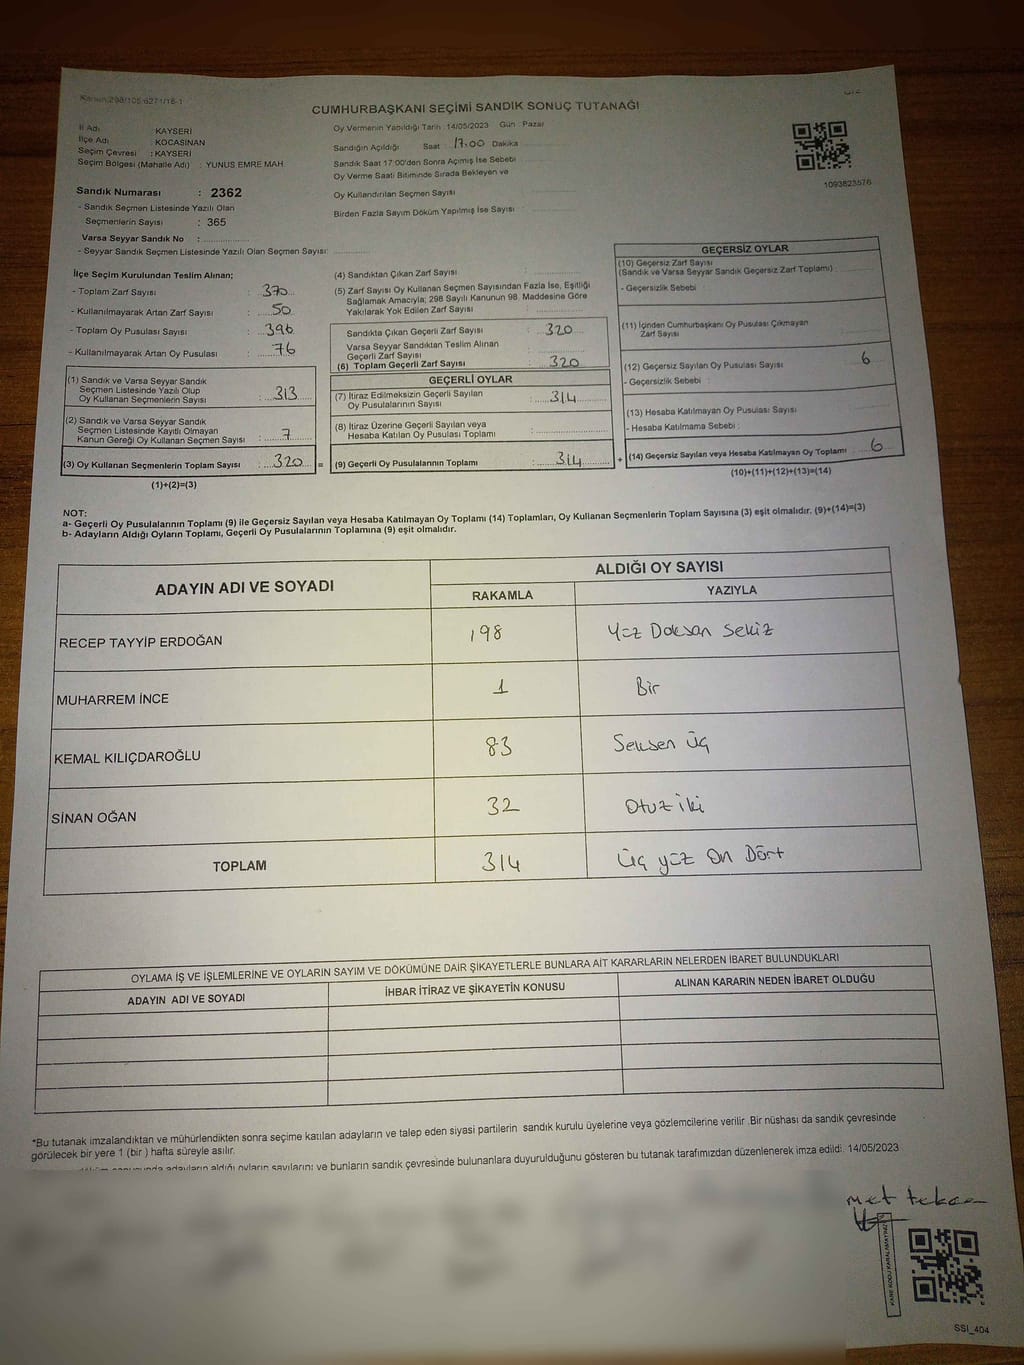 Kanun:298/105 6271/16-1
CUMHURBAŞKANI SEÇİMİ SANDIK SONUÇ TUTANAĞI
İl Adı KAYSERİ
İlçe Adı KOCASİNAN
Seçim Çevresi : KAYSERİ
Seçim Bölgesi (Mahalle Adı) : YUNUS EMRE MAH
Sandık Numarası : 2362
- Sandık Seçmen Listesinde Yazılı Olan
Seçmenlerin Sayısı : 365
Varsa Seyyar Sandık No :
- Seyyar Sandık Seçmen Listesinde Yazılı Olan Seçmen Sayısı:
Oy Vermenin Yapıldığı Tarih : 14/05/2023 Gün : Pazar
Sandığın Açıldığı Saat : 17.00 Dakika
Sandık Saat 17:00'den Sonra Açımış İse Sebebi
Oy Verme Saati Bitiminde Sırada Bekleyen ve
Oy Kullandırılan Seçmen Sayısı
Birden Fazla Sayım Döküm Yapılmış İse Sayısı
1093823576
İlçe Seçim Kurulundan Teslim Alınan;
- Toplam Zarf Sayısı : 370
- Kullanılmayarak Artan Zarf Sayısı : 50
- Toplam Oy Pusulası Sayısı : 396
- Kullanılmayarak Artan Oy Pusulası : 76
(1) Sandık ve Varsa Seyyar Sandık
Seçmen Listesinde Yazılı Olup
Oy Kullanan Seçmenlerin Sayısı : 313
(2) Sandık ve Varsa Seyyar Sandık
Seçmen Listesinde Kayıtlı Olmayan
Kanun Gereği Oy Kullanan Seçmen Sayısı : 7
(3) Oy Kullanan Seçmenlerin Toplam Sayısı : 320 =
(1)+(2)=(3)
(4) Sandıktan Çıkan Zarf Sayısı :
(5) Zarf Sayısı Oy Kullanan Seçmen Sayısından Fazla İse, Eşitliği
Sağlamak Amacıyla; 298 Sayılı Kanunun 98. Maddesine Göre
Yakılarak Yok Edilen Zarf Sayısı :
Sandıkta Çıkan Geçerli Zarf Sayısı : 320
Varsa Seyyar Sandıktan Teslim Alınan
Geçerli Zarf Sayısı :
(6) Toplam Geçerli Zarf Sayısı : 320
GEÇERLİ OYLAR
(7) İtiraz Edilmeksizin Geçerli Sayılan
Oy Pusulalarının Sayısı : 314
(8) İtiraz Üzerine Geçerli Sayılan veya
Hesaba Katılan Oy Pusulası Toplamı :
(9) Geçerli Oy Pusulalarının Toplamı : 314 +
GEÇERSİZ OYLAR
(10) Geçersiz Zarf Sayısı
(Sandık ve Varsa Seyyar Sandık Geçersiz Zarf Toplamı) :
- Geçersizlik Sebebi :
(11) İçinden Cumhurbaşkanı Oy Pusulası Çıkmayan
Zarf Sayısı
(12) Geçersiz Sayılan Oy Pusulası Sayısı : 6
- Geçersizlik Sebebi :
(13) Hesaba Katılmayan Oy Pusulası Sayısı
- Hesaba Katılmama Sebebi :
(14) Geçersiz Sayılan veya Hesaba Katılmayan Oy Toplamı : 6
(10)+(11)+(12)+(13)=(14)
NOT:
a- Geçerli Oy Pusulalarının Toplamı (9) ile Geçersiz Sayılan veya Hesaba Katılmayan Oy Toplamı (14) Toplamları, Oy Kullanan Seçmenlerin Toplam Sayısına (3) eşit olmalıdır. (9)+(14)=(3)
b- Adayların Aldığı Oyların Toplamı, Geçerli Oy Pusulalarının Toplamına (9) eşit olmalıdır.
ADAYIN ADI VE SOYADI ALDIĞI OY SAYISI
RAKAMLA YAZIYLA
RECEP TAYYİP ERDOĞAN 198 Yüz Doksan Sekiz
MUHARREM İNCE 1 Bir
KEMAL KILIÇDAROĞLU 83 Seksen üç
SİNAN OĞAN 32 Otuz iki
TOPLAM 314 üç yüz On Dört
OYLAMA İŞ VE İŞLEMLERİNE VE OYLARIN SAYIM VE DÖKÜMÜNE DAİR ŞİKAYETLERLE BUNLARA AİT KARARLARIN NELERDEN İBARET BULUNDUKLARI
ADAYIN ADI VE SOYADI İHBAR İTİRAZ VE ŞİKAYETİN KONUSU ALINAN KARARIN NEDEN İBARET OLDUĞU
*Bu tutanak imzalandıktan ve mühürlendikten sonra seçime katılan adayların ve talep eden siyasi partilerin sandık kurulu üyelerine veya gözlemcilerine verilir .Bir nüshası da sandık çevresinde
görülecek bir yere 1 (bir ) hafta süreyle asılır.
adayların aldığı oyların sayılarını ve bunların sandık çevresinde bulunanlara duyurulduğunu gösteren bu tutanak tarafımızdan düzenlenerek imza edildi. 14/05/2023
SSI_404